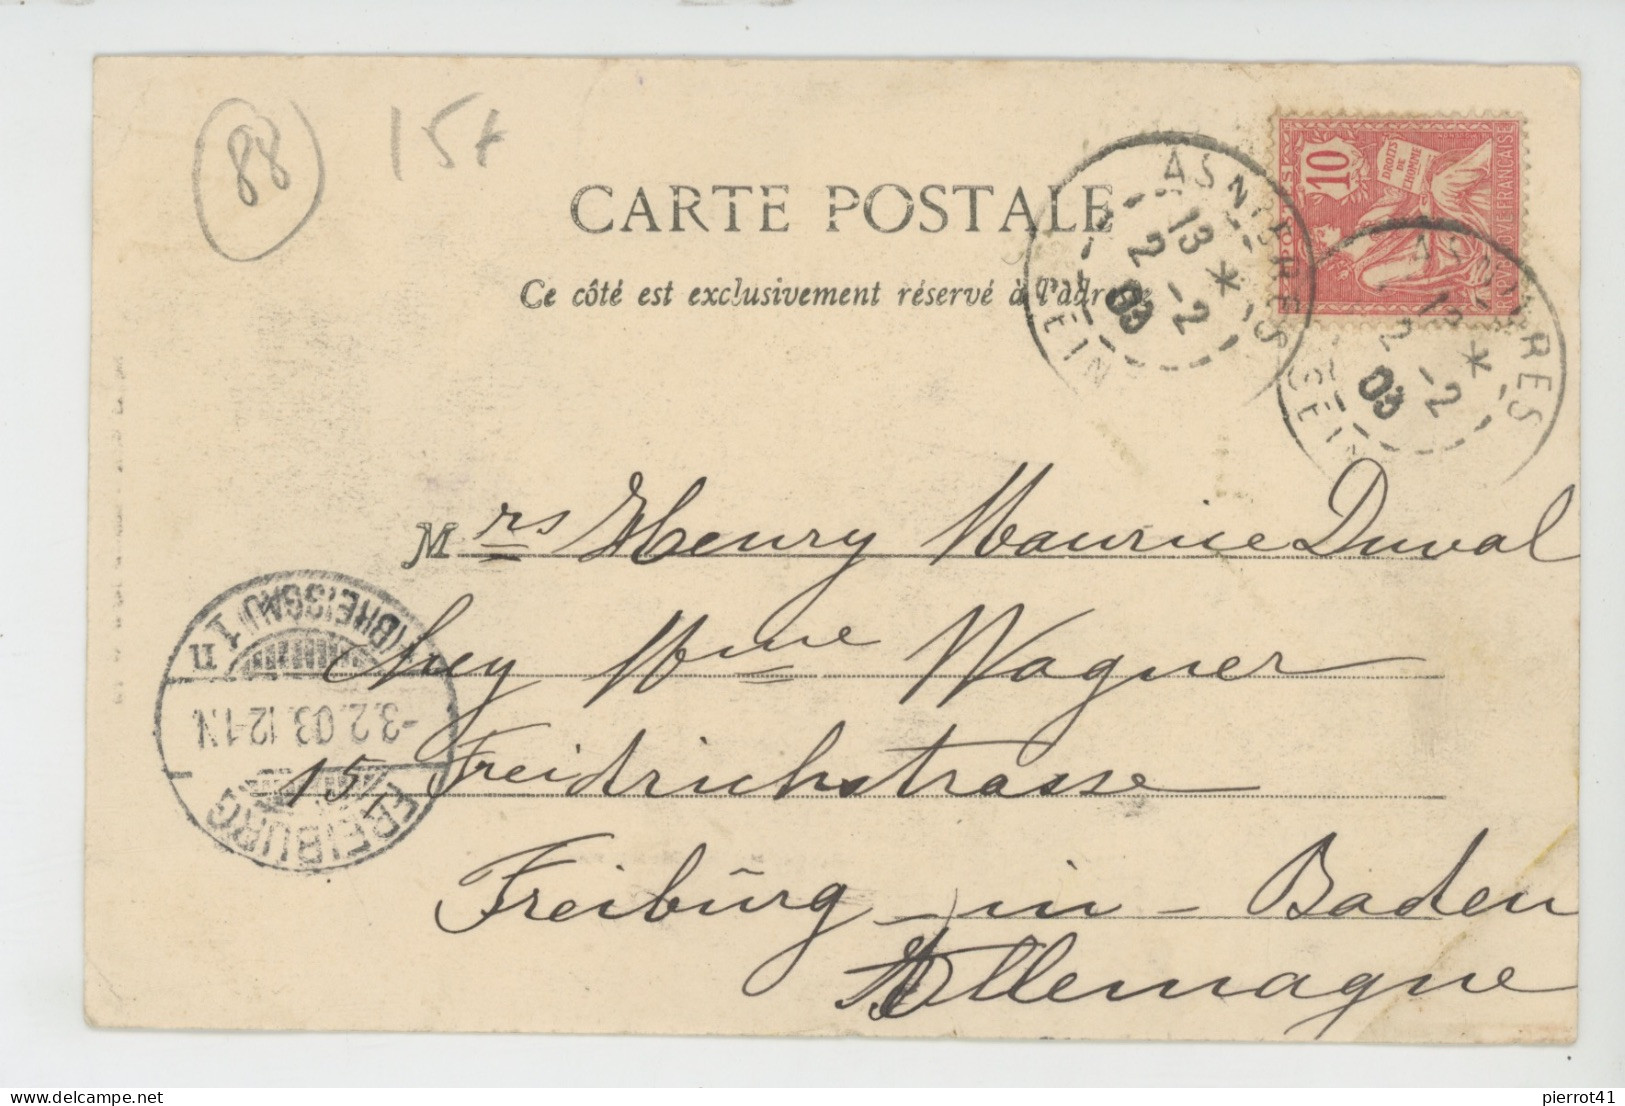 88 15+
CARTE POSTALE
Ce côté est exclusivement réservé à l'adresse
10
DROITS
DE
L'HOMME
POSTES
REPUBLIQUE FRANÇAISE
ASNIERES
13 *
2 -2
03
SEINE
ASNIERES
13 *
2 -2
03
SEINE
Mrs Henry Maurice Duval
chez Mme Wagner
15, Freidrichstrasse
Freibūrg-in-Baden
Allemagne
FREIBURG
(BREISGAU) 1
-3.2.03.12-1.N.
pierrot41